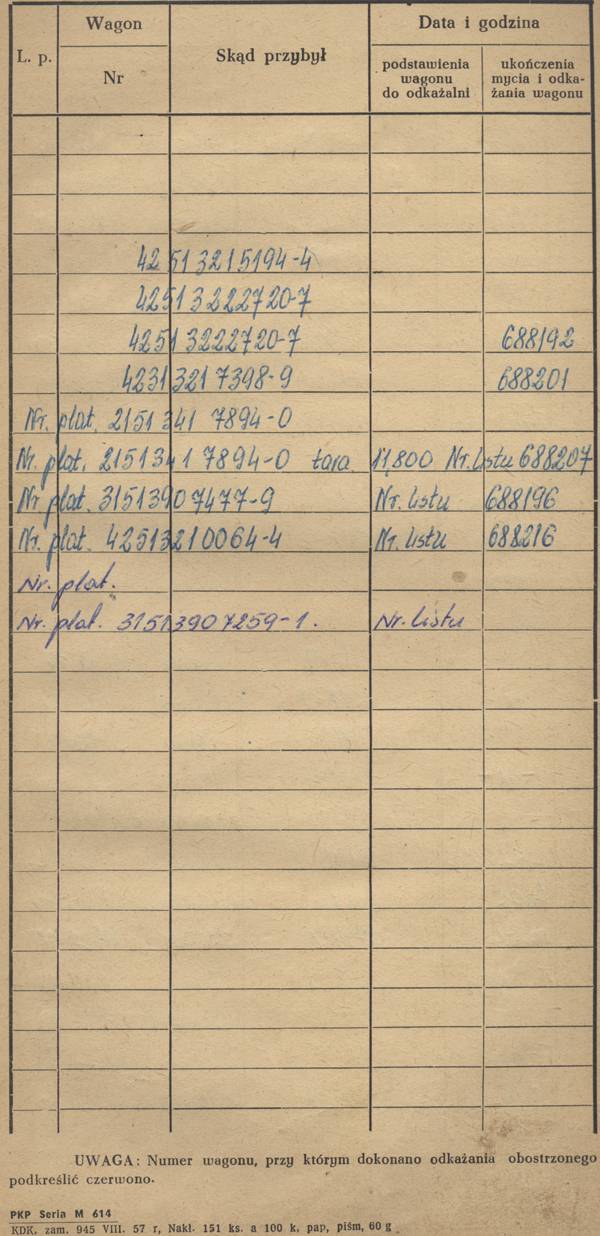 L. p.
Wagon
Nr
Skąd przybył
Data i godzina
podstawienia
wagonu
do odkażalni
ukończenia
mycia i odka-
żania wagonu
42 51 3215194-4
4251 3222720-7
4251 3222720-7 688192
4231 3217398-9 688201
Nr. plat. 2151 341 7894-0
Nr. plat. 2151 341 7894-0 tara 11,800 Nr. listu 688207
Nr. plat. 3151 3907477-9 Nr. listu 688196
Nr. plat. 4251 3210064-4 Nr. listu 688216
Nr. plat.
Nr. plat. 3151 3907259-1. Nr. listu
UWAGA: Numer wagonu, przy którym dokonano odkażania obostrzonego
podkreślić czerwono.
PKP Seria M 614
KDK. zam. 945 VIII. 57 r, Nakł. 151 ks. a 100 k, pap, piśm, 60 g